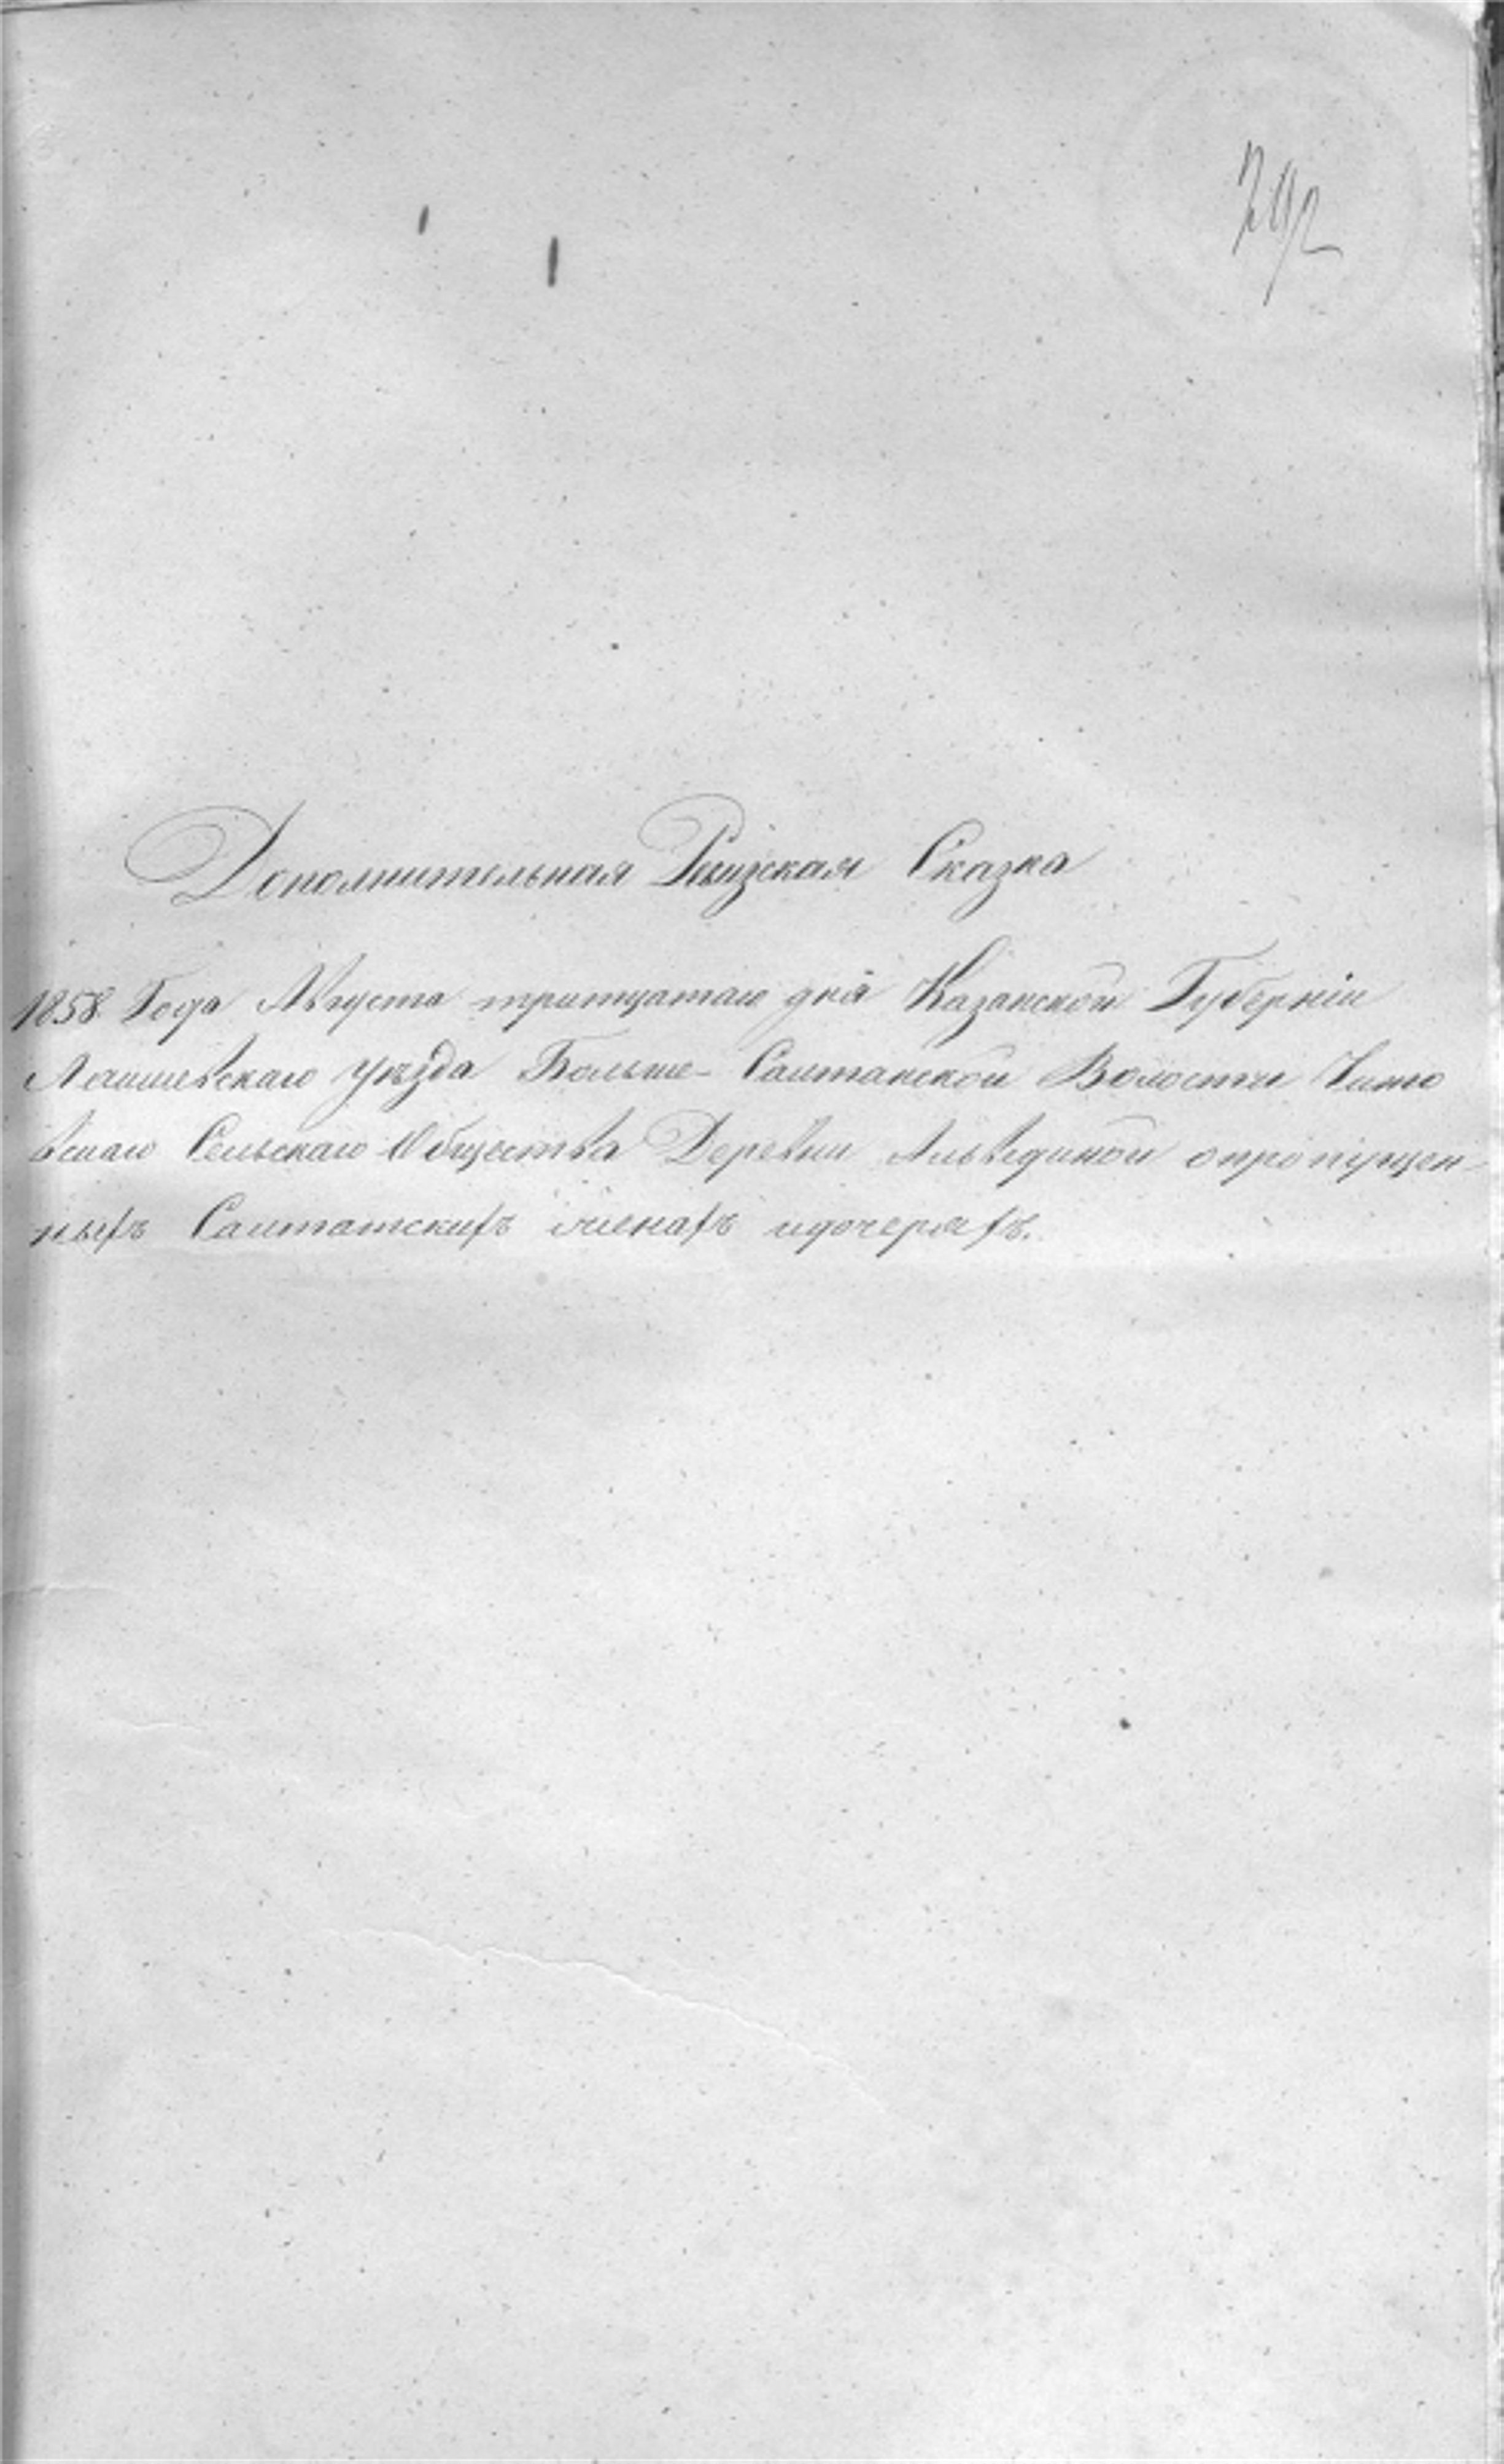 Дополнительная Ревизская Сказка
1858 Года Августа тритцатаго дня Казанской Губерніи
Лаишевскаго уѣзда Больше-Салтанской Волости
Сельскаго Общества Деревни опропущен-
ныхъ Салтатскихъ женахъ идочеряхъ.